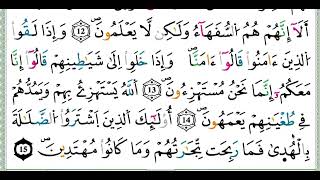 أَلَآ إِنَّهُمْ هُمُ السُّفَهَآءُ وَلَٰكِن لَّا يَعْلَمُونَ ۝12 وَإِذَا لَقُوا
الَّذِينَ ءَامَنُوا قَالُوٓا ءَامَنَّا وَإِذَا خَلَوْا إِلَىٰ شَيَٰطِينِهِمْ قَالُوٓا إِنَّا
مَعَكُمْ إِنَّمَا نَحْنُ مُسْتَهْزِءُونَ ۝13 اللَّهُ يَسْتَهْزِئُ بِهِمْ وَيَمُدُّهُمْ
فِى طُغْيَٰنِهِمْ يَعْمَهُونَ ۝14 أُو۟لَٰٓئِكَ الَّذِينَ اشْتَرَوُا الضَّلَٰلَةَ
بِالْهُدَىٰ فَمَا رَبِحَت تِّجَٰرَتُهُمْ وَمَا كَانُوا مُهْتَدِينَ ۝15